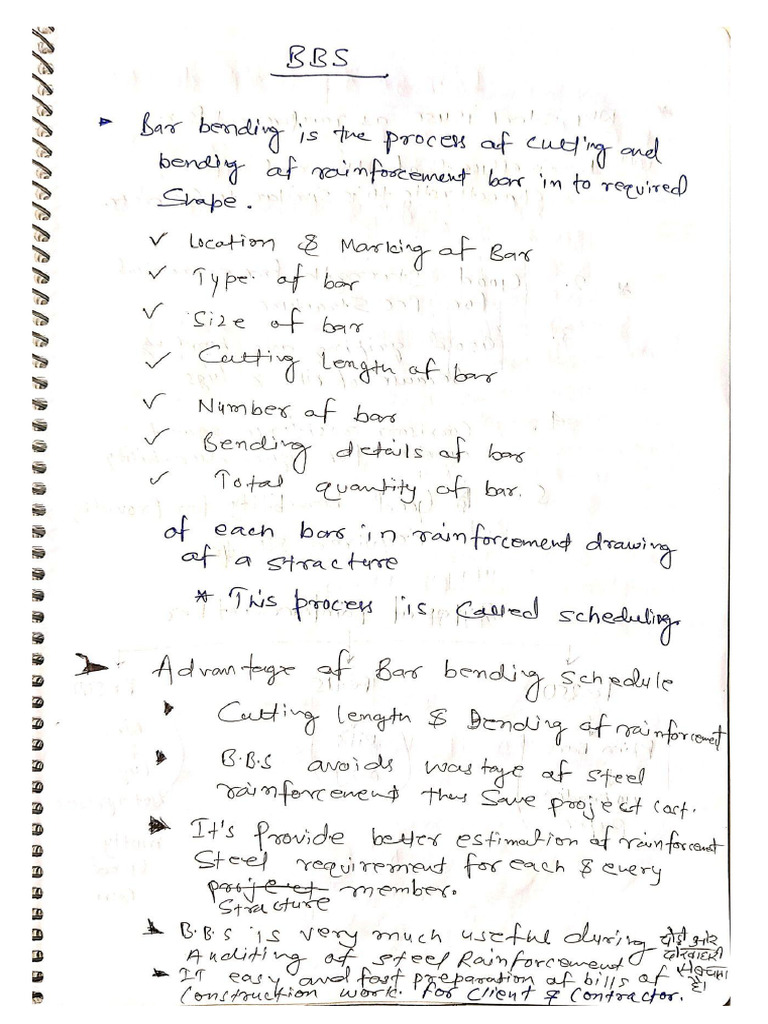 BBS
Bar bending is the process of cutting and
bending of rainforcement bar in to required
Shape.
✓ Location & Marking of Bar
✓ Type of bar
✓ Size of bar
✓ Cutting length of bar
✓ Number of bar
✓ Bending details of bar
✓ Total quantity of bar.
of each bar in rainforcement drawing
of a stracture
* This process is Called scheduling.
Advantage of Bar bending schedule
Cutting length & Bending of rainforcement
B.B.S avoids wastage of steel
rainforcement thus Save project cost.
It's Provide better estimation of rainforcement
Steel requirement for each & every
project member.
Stracture
B.B.S is very much useful during
Auditing of steel Rainforcement
IT easy and fast preparation of bills of
Construction work. for Client & Contractor.